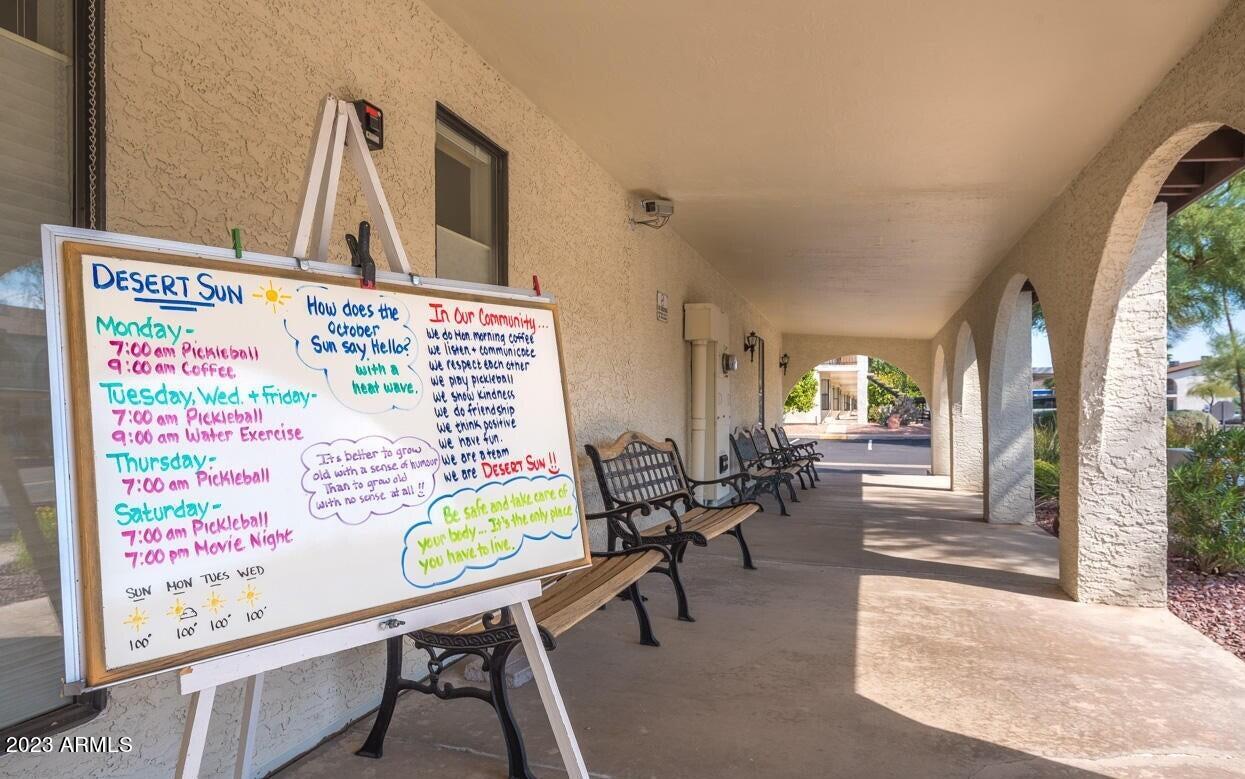 DESERT SUN
Monday-
7:00 am Pickleball
9:00 am Coffee
Tuesday, Wed. + Friday-
7:00 am Pickleball
9:00 am Water Exercise
Thursday-
7:00 am Pickleball
Saturday-
7:00 am Pickleball
7:00 pm Movie Night
SUN MON TUES WED
100° 100° 100° 100°
How does the
October
Sun say, Hello?
with a
heat wave.
It's better to grow
old with a sense of humour
Than to grow old
with no sense at all!!
In Our Community...
We do Mon. morning coffee
We listen + communicate
We respect each other
We play pickleball
We show kindness
We do friendship
We think positive
We have fun.
We are a team
We are DESERT SUN!!
Be safe and take care of
your body... It's the only place
you have to live.
2023 ARMLS